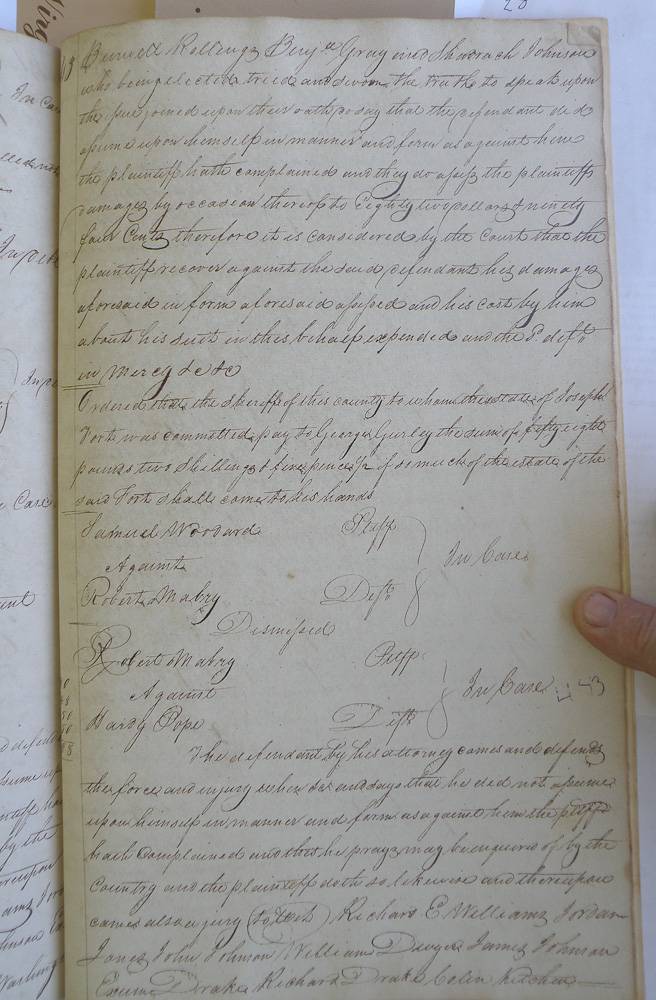 Burwell Rollings Benja Gray and Shadrach Johnson
who being elected tried and sworn the truth to speak upon
the issue joined upon their oath do say that the defendant did
assume upon himself in manner and form as against him
the plaintiff hath complained and they do assess the plaintiffs
damages by occasion thereof to Eighty two dollars & ninety
four Cents therefore it is considered by the Court that the
plaintiff recover against the said defendant his damages
aforesaid in form aforesaid assessed and his cost by him
about his suit in this behalf expended and the sd. deft.
in Mercy &c &c
Ordered that the sheriff of this county to whom the estate of Joseph
Fort was committed pay to George Gurley the sum of fifty eight
pounds two shillings & five pence if so much of the estate of the
said Fort shall come to his hands
Samuel Woodard Pltff
Against In Case
Robert Mabry Deft.
Dismissed
Robert Mabry Pltff
Against In Case
Hardy Pope Deft.
The defendant by his attorney comes and defends
the force and injury when &c and says that he did not assume
upon himself in manner and form as against him the pltff
hath complained and this he prays may be enquired of by the
Country and the plaintiff doth so likewise and thereupon
came also a jury (to wit) Richard E Williams Jordan
Jones John Johnson William James Johnson
Exum Drake Richard Drake Colin Kitchen